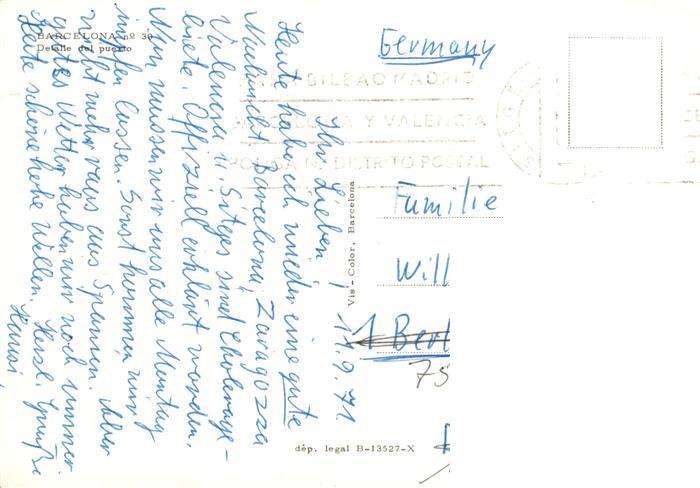 BARCELONA nº 30
Detalle del puerto
Ihr Lieben! 14.9.71
Heute habe ich wieder eine gute
Nachricht. Barcelona, Zaragoza
Valencia u. Sitges sind Cholerage-
biete. Offiziell erklärt worden.
Nun müssen wir uns alle Montag
impfen lassen. Sonst kommen wir
nicht mehr raus aus Spanien. Aber
gutes Wetter haben wir noch immer
Heute schöne hohe Wellen. Herzl. Grüße
Hansi.
Vis - Color, Barcelona
dép. legal B-13527-X
Germany
BILBAO MADRID
Y VALENCIA
PONGA Nº DISTRITO POSTAL
Familie
Will
1 Berl
75